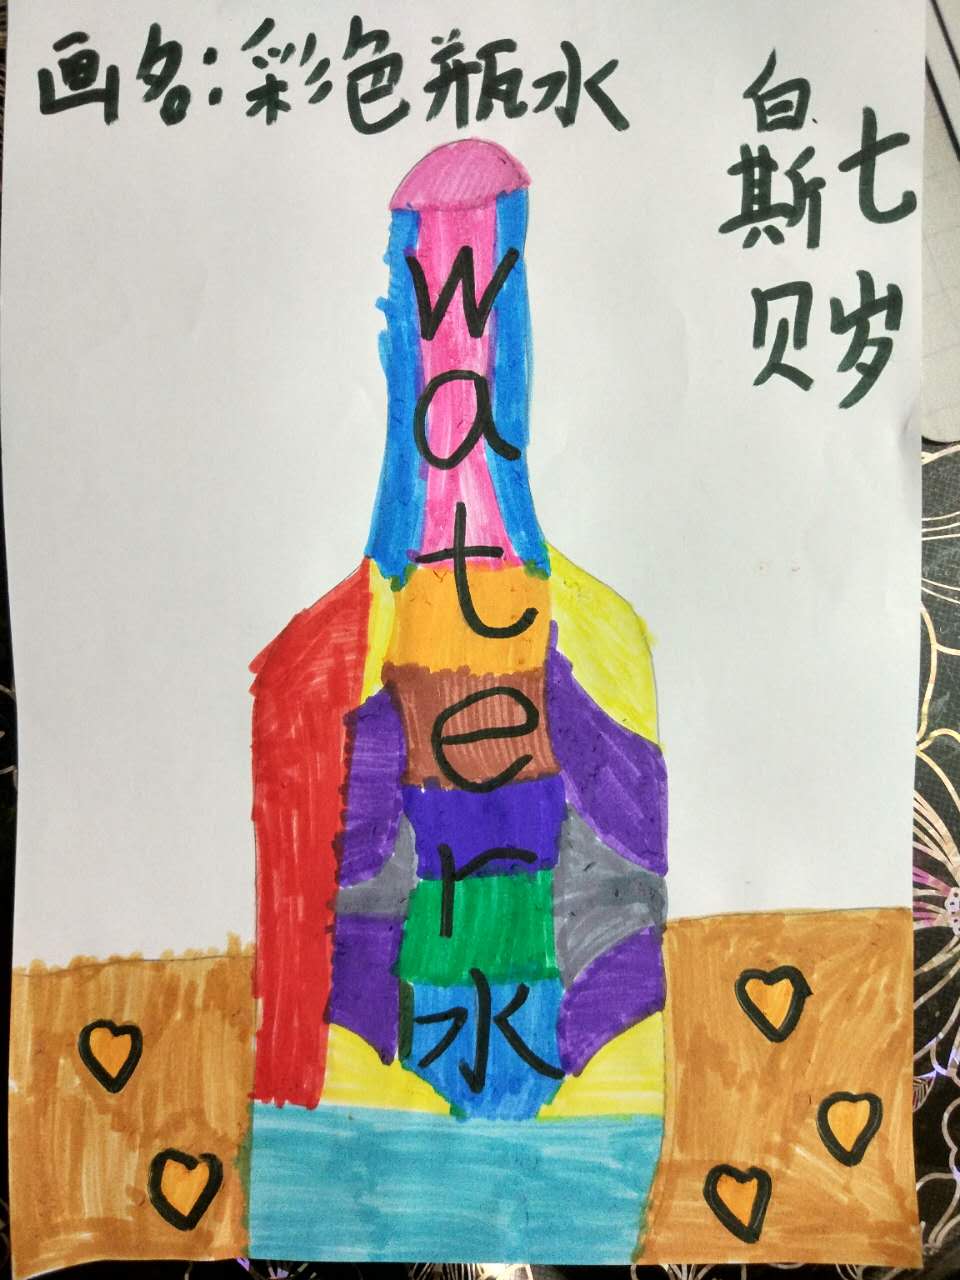 画名:彩色瓶水
白斯贝
七岁
water水